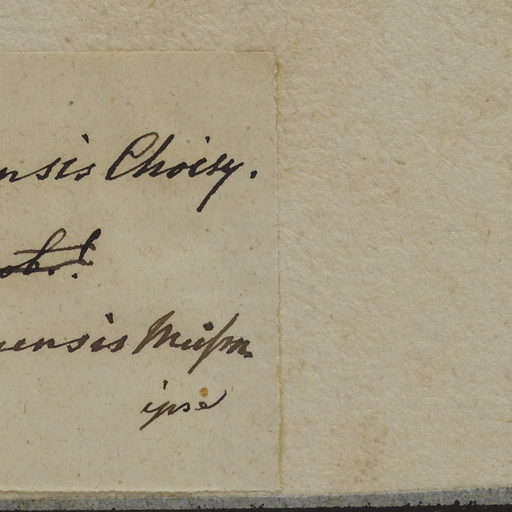 nsis Choisy.
ensis Meissn.
ipse